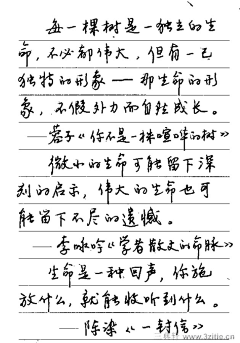 每一棵树是一独立的生
命，不必都伟大，但有一己
独特的形象——那生命的形
象，不假外力而自在成长。
——蓉子《你不是一棵喧哗的树》
微小的生命可能留下深
刻的启示，伟大的生命也可
能留下不尽的遗憾。
——李咏吟《学者散文的命脉》
生命是一种回声，你施
放什么，就能收听到什么。
——陈染《一封信》
www.3zitie.cn